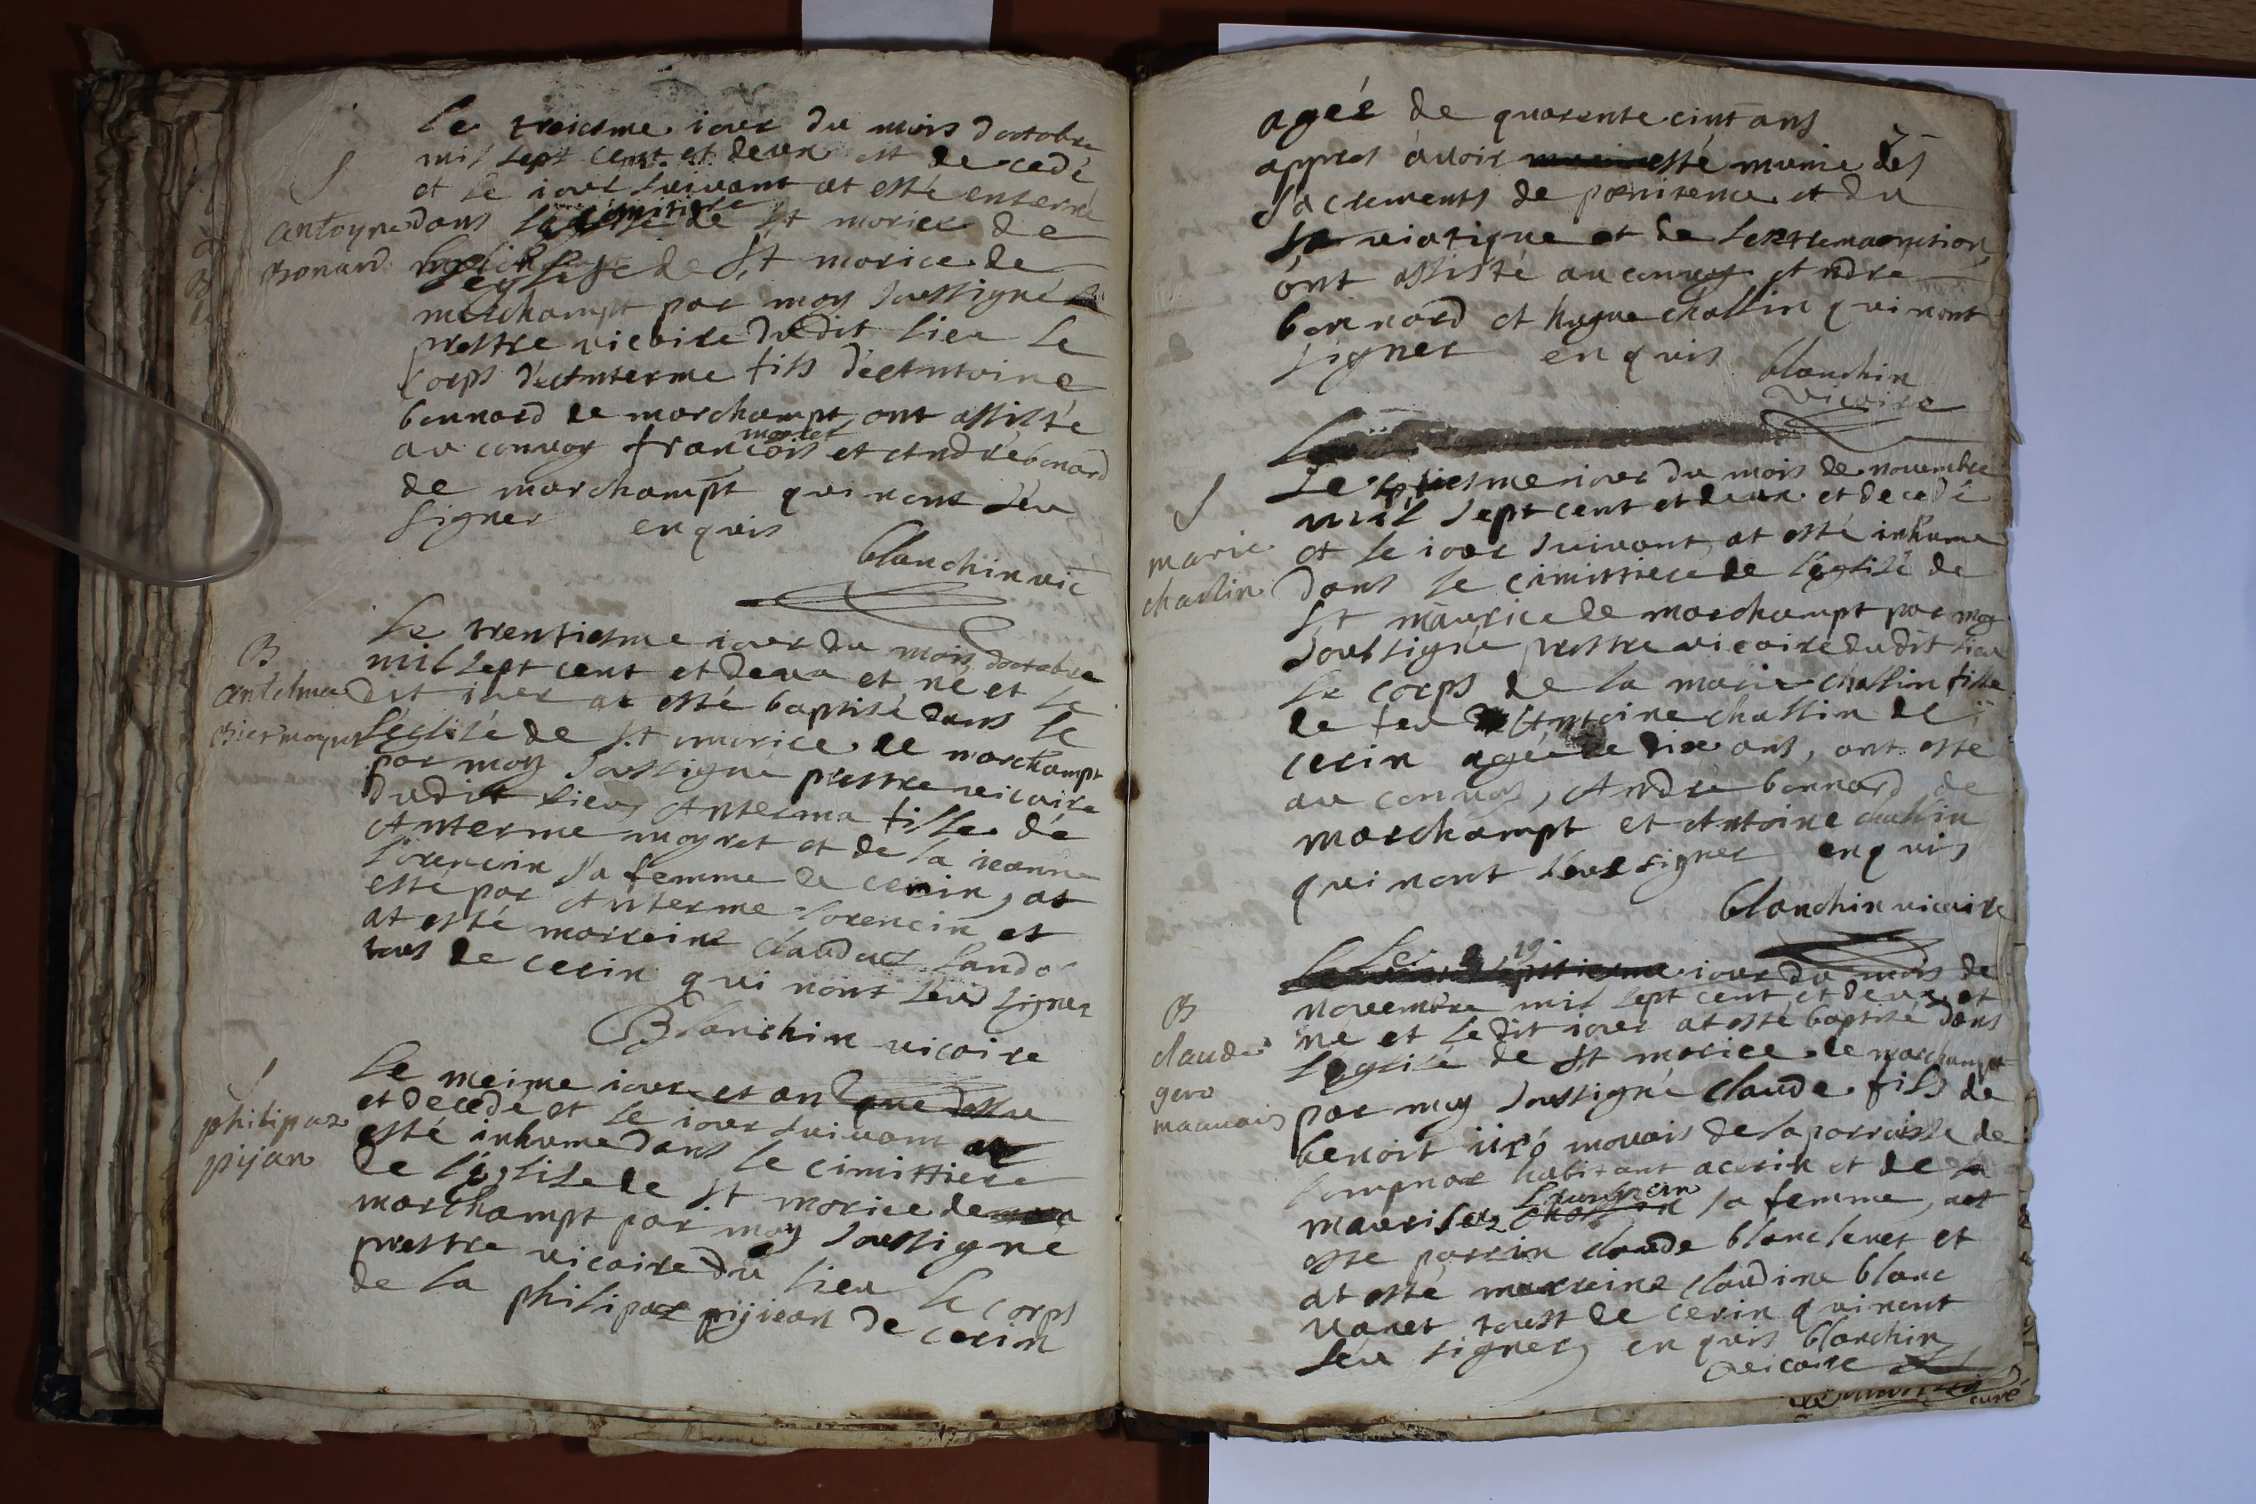 S
antoyne
Bonard
Le treiesme iour du mois doctobre
mil sept cent et deux est decedé
et le iour suivant at esté enterré
dans le cimitiere de St morice de
l'eglise de St morice de
marchampt par moy soussigné
prestre vicaire dudit lieu le
corps d'Anterme fils d'Antoine
bonnard de marchampt ont assisté
au convoy francois moret et André bonard
de marchampt qui nont sëu
signer enquis
blanchin vic
B
antelma
moyret
Le trentiesme iour du mois doctobre
mil sept cent et deux et né et le
dit iour at esté baptisé dans le
l'eglisé de St morice de marchampt
par moy soussigné prestre vicaire
dudit lieu Anterma fille de
Anterme moyret et de la ieanne
lorencin sa femme de cerin, at
esté par Anterme lorencin et
at esté marreine claudue lando
tous de cerin qui nont sëu signer
Blanchin vicaire
S
philipaz
pijan
Le meime iour et an que dessu
et decedé et le iour suivant at
esté inhumé dans le cimittiere
de l'eglise de St morice de
marchampt par moy soussigné
prestre vicaire du lieu le corps
de la philipaz pijean de cerin
agéé de quarente cint ans
appres avoir esté munie des
sacrements de poenitence et du
viatique et de lextremaonction,
ont assisté au convoy Andre
bonnard et hugue chassin qui nont
signer enquis
blanchin
vicaire
S
marie
chassin
Le iour du mois de novembre
mil sept cent et deux et decedé
et le iour suivant at esté inhumé
dans le cimittiere de l'eglisé de
St maurice de marchampt par moy
soubsigné prestre vicaire dudit lieu
le corps de la marie chassin fille
de feu Antoine chassin de
cerin agéé de dix ans, ont esté
au convoy, André bonnard de
marchampt et Antoine chassin
qui nont sëu signer enquis
blanchin vicaire
B
claude
gero
mauvais
Le 19 iour du mois de
novembre mil sept cent et deux et
né et ledit iour at esté baptisé dans
l'eglisé de St morice de marchampt
par moy soussigné claude fils de
benoit movais de la parroisse de
lompnas habitant a cerin et de la
maurisaz sa femme, at
esté parrin claude blanc lenet et
at esté marreine claudine blanc
vanet toust de cerin qui nont
sëu signer enquis blanchin
vicaire
curé